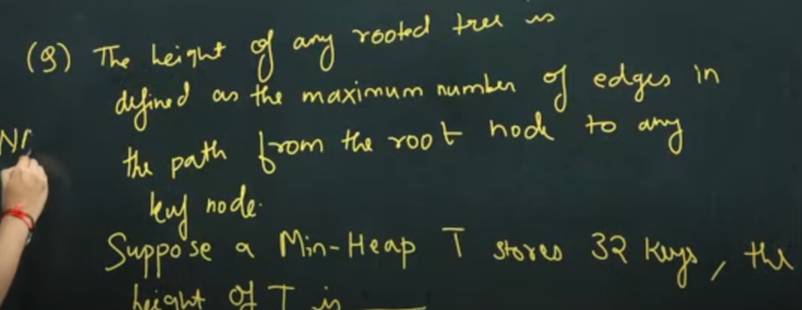 (Q) The height of any rooted tree is
defined as the maximum number of edges in
the path from the root node to any
leaf node.
Suppose a Min-Heap T stores 32 keys, the
height of T is ____
NA